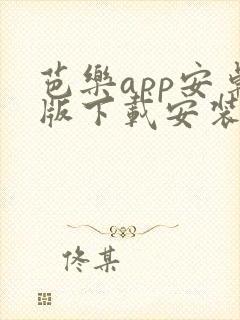 芭樂app安卓
版下載安裝
佟某